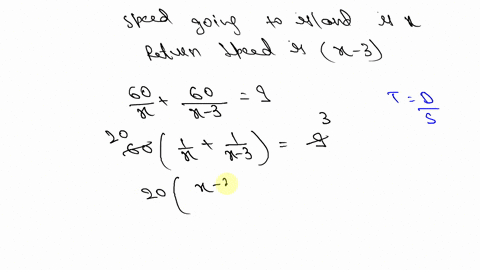 speed going to island is x
Return speed is (x-3)
60/x + 60/(x-3) = 9
T = D/S
20 60 (1/x + 1/(x-3)) = 9 3
20 ( x-